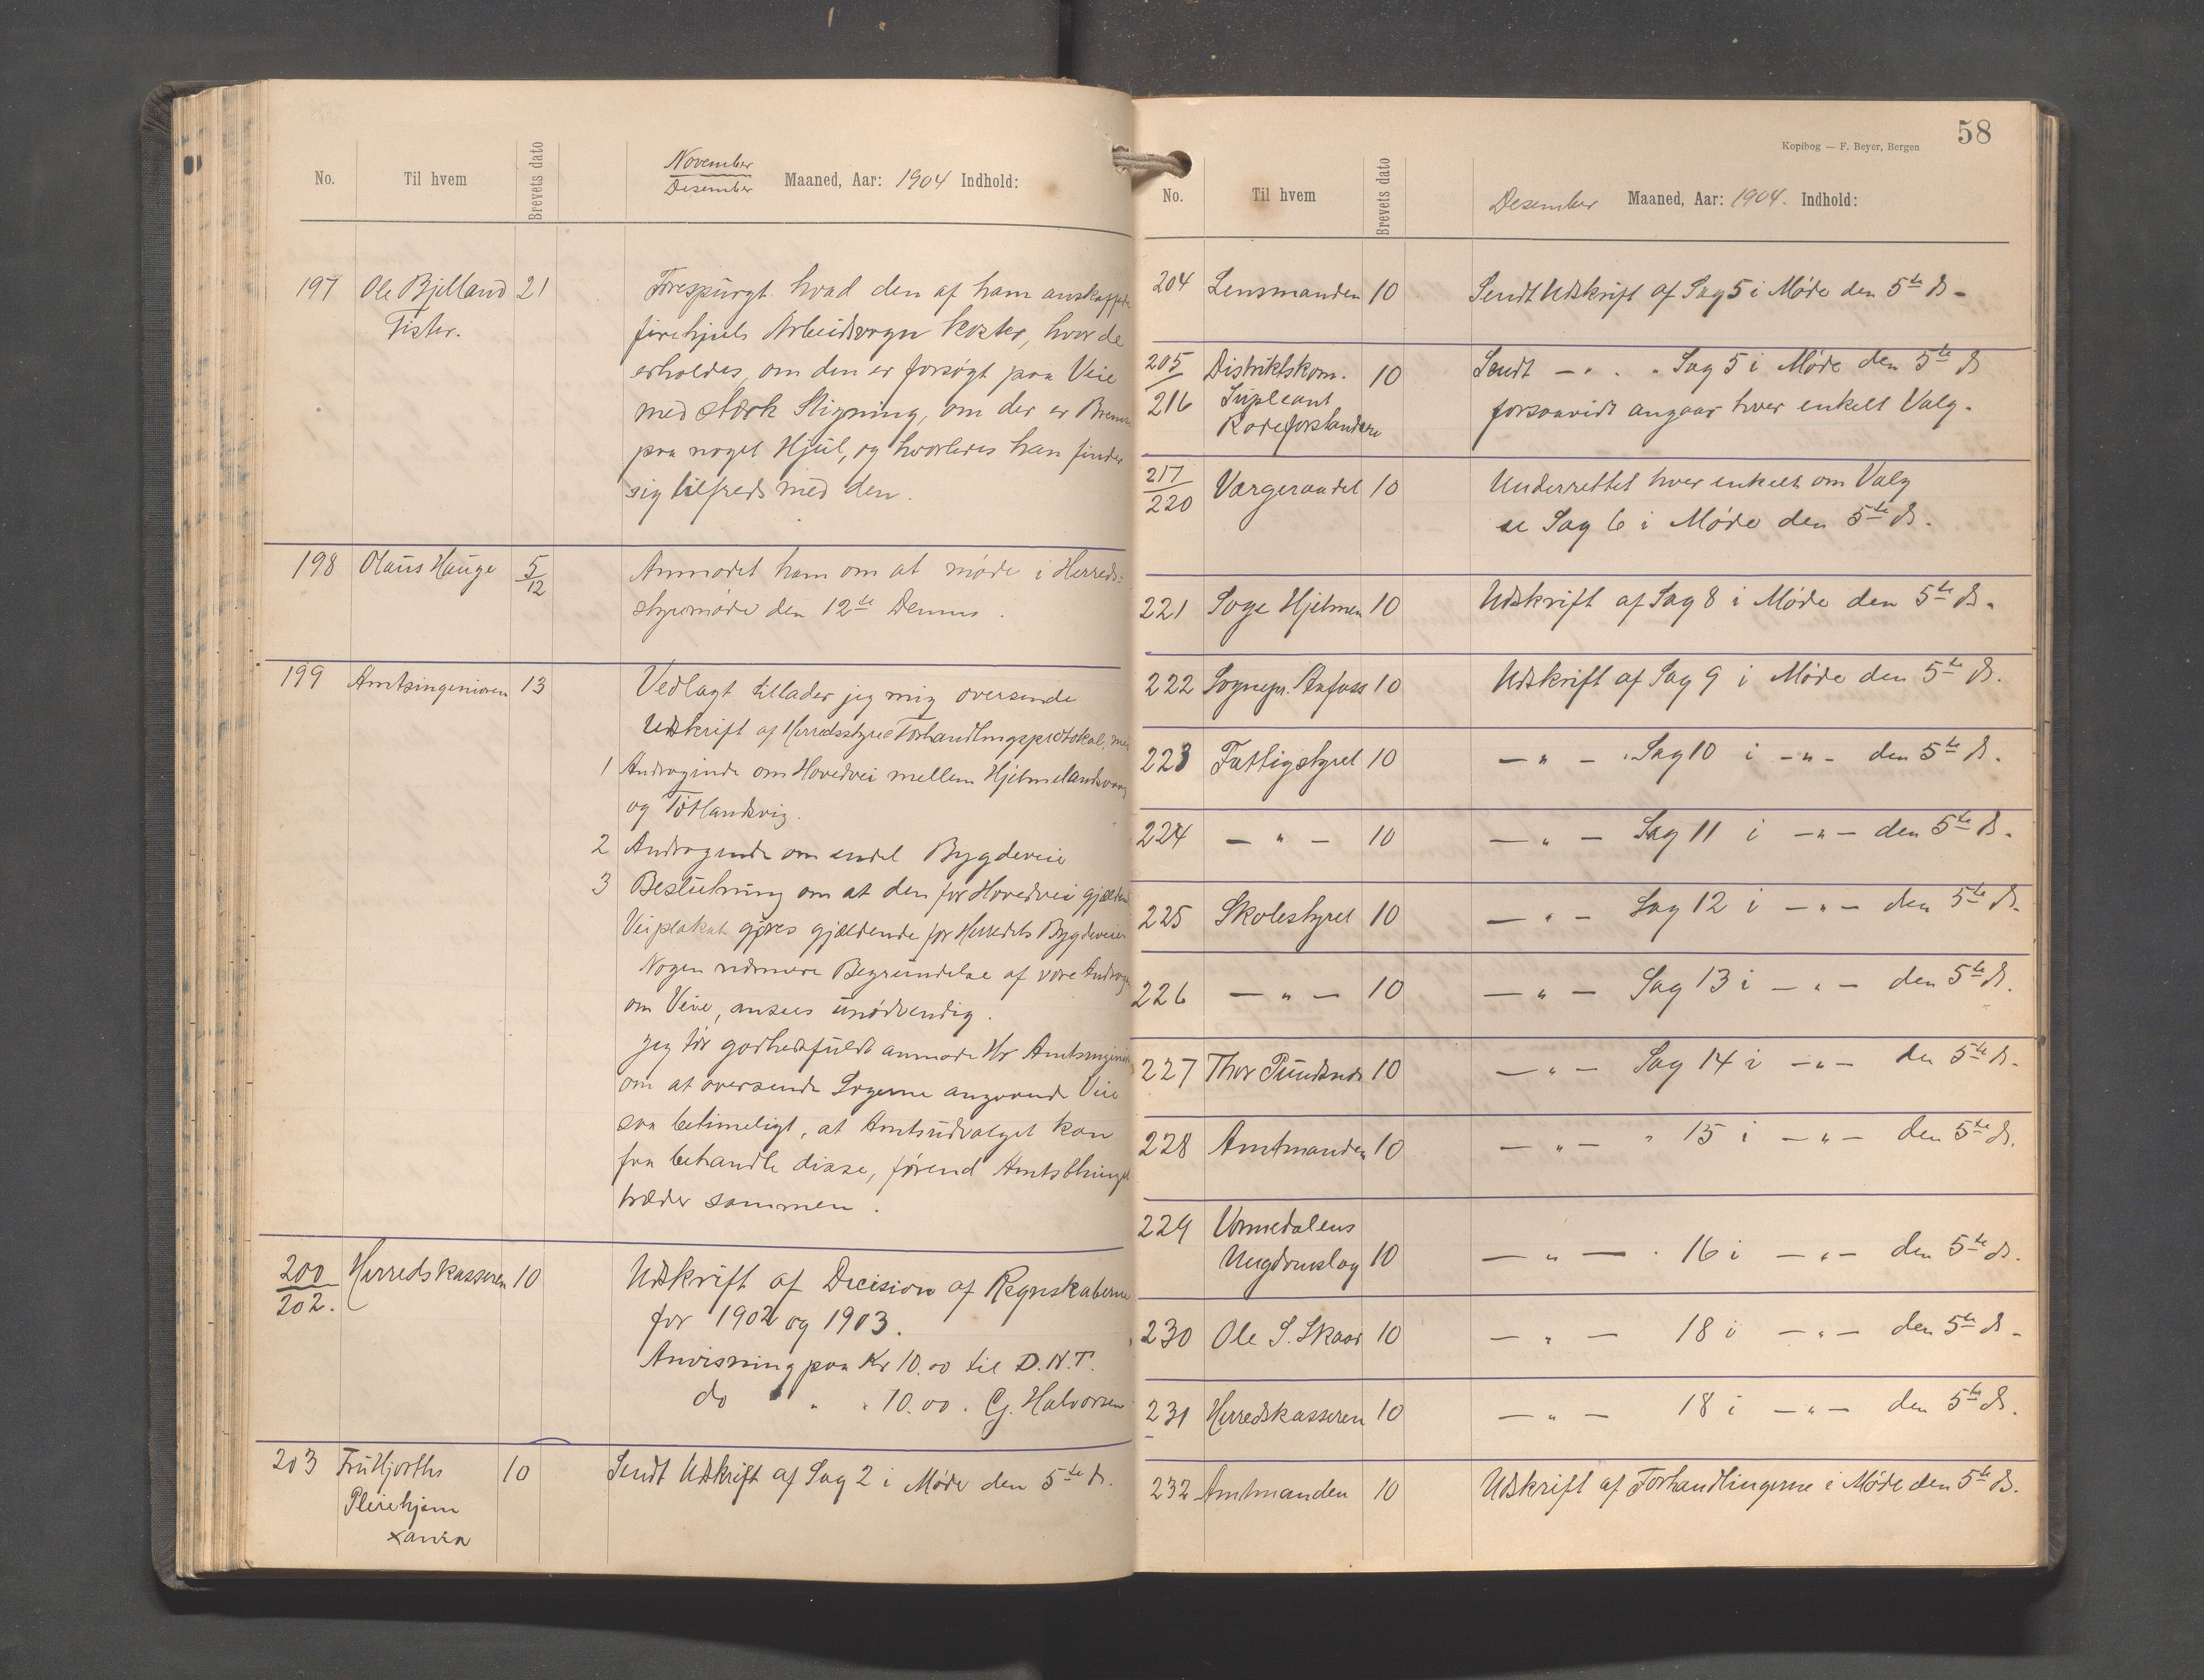 No. Til hvem Brevets dato November Desember Maaned, Aar: 1904 Indhold:
197 Ole Bjelland 21 Forespurgt hvad den af ham anskaffede
Fister. firehjuls Arbeidsvogn koster, hvor de
erholdes, om den er forsøgt paa Veie
med stærk Stigning, om der er Bremse
paa noget Hjul, og hvorledes han finder
sig tilfreds med den.
198 Olaus Hauge 5/12 Anmodet ham om at møde i Herreds-
styremøde den 12te Dennes.
199 Amtsingeniøren 13 Vedlagt tillader jeg mig oversende
Udskrift af Herredsstyrets Forhandlingsprotokol, med
1 Andragende om Hovedvei mellem Hjelmelandsvaag
og Tøtlandsvig.
2 Andragende om endel Bygdeveie
3 Beslutning om at den for Hovedveie gjældende
Veiplakat gjøres gjældende for Herredets Bygdeveie
Nogen nærmere Begrundelse af vore Andrag
om Veie, ansees unødvendig.
Jeg tør godhedsfuldt anmode Hr Amtsingeniøren
om at oversende Sagerne angaaende Veie
saa betimeligt, at Amtsudvalget kan
faa behandle disse, førend Amtsthinget
træder sammen.
200/202. Herredskasseren 10 Udskrift af Decision af Regnskaberne
for 1902 og 1903.
Anvisning paa Kr 10.00 til D.N.T.
do " " 10.00 . Cj. Halvorsen
203 Fru Hjorths 10 Sendt Udskrift af Sag 2 i Møde den 5te ds.
Pleiehjem
Xania
58
Kopibog — F. Beyer, Bergen
No. Til hvem Brevets dato Desember Maaned, Aar: 1904. Indhold:
204 Lensmanden 10 Sendt Udskrift af Sag 5 i Møde den 5te ds -
205/216 Distriktskom. 10 Sendt - " . " Sag 5 i Møde den 5te ds
Supleant forsaavidt angaar hver enkelt Valg.
Rodeforstandere
217/220 Vergeraadet 10 Underrettet hver enkelt om Valg
se Sag 6 i Møde den 5te ds.
221 Soge Hjelmen 10 Udskrift af Sag 8 i Møde den 5te ds.
222 Sognepr. 10 Udskrift af Sag 9 i Møde den 5te ds.
223 Fattigstyret 10 — " — . Sag 10 i - " - den 5te ds.
224 — " — 10 — " — Sag 11 i — " — den 5te ds.
225 Skolestyret 10 — " — Sag 12 i — " — den 5te ds.
226 — " — 10 — " — Sag 13 i — " — den 5te ds.
227 Thor 10 — " — Sag 14 i — " — den 5te ds.
228 Amtmanden 10 — " — " 15 i — " — den 5te ds.
229 Vormedalens
Ungdomslag 10 — " — . 16 i — " — den 5te ds.
230 Ole S. Skaar 10 — " — 18 i — " — den 5te ds.
231 Herredskasseren 10 — " — 18 i — " — den 5te ds.
232 Amtmanden 10 Udskrift af Forhandlingerne i Møde den 5te ds.